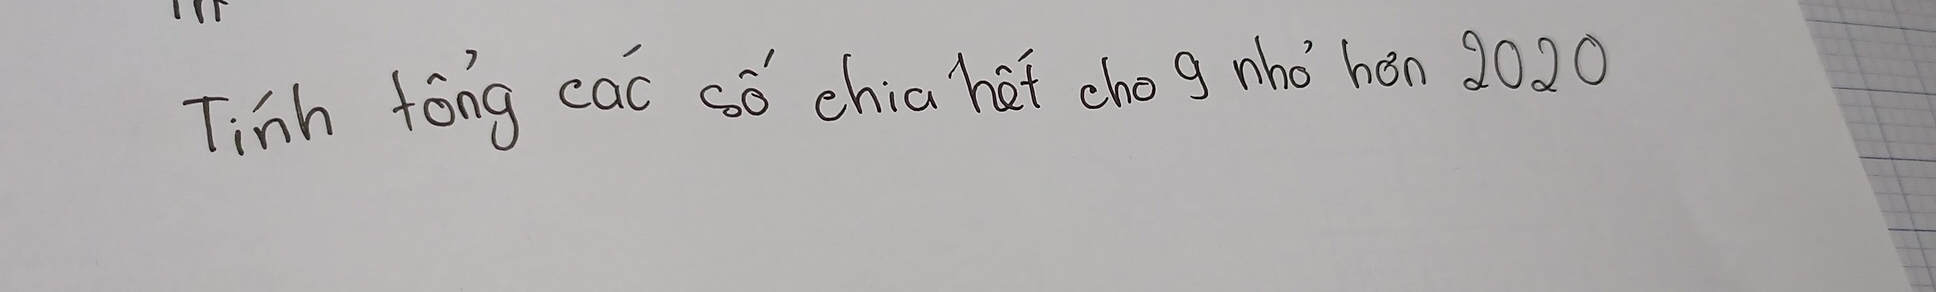 Tính tổng các số chia hết cho 9 nhỏ hơn 2020